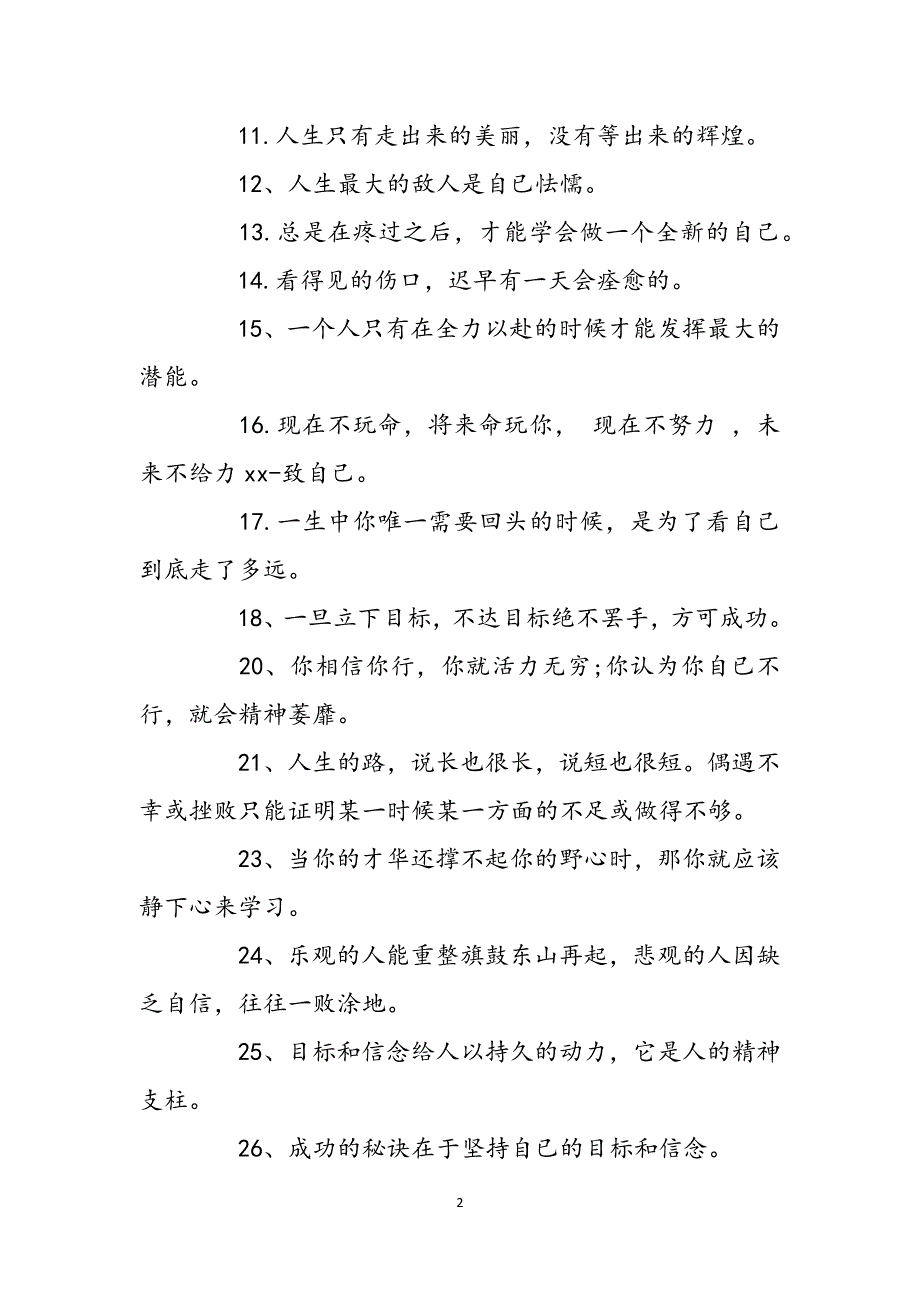 11.人生只有走出来的美丽，没有等出来的辉煌。
12、人生最大的敌人是自己怯懦。
13.总是在疼过之后，才能学会做一个全新的自己。
14.看得见的伤口，迟早有一天会痊愈的。
15、一个人只有在全力以赴的时候才能发挥最大的
潜能。
16.现在不玩命，将来命玩你， 现在不努力 ，未
来不给力 xx-致自己。
17.一生中你唯一需要回头的时候，是为了看自己
到底走了多远。
18、一旦立下目标，不达目标绝不罢手，方可成功。
20、你相信你行，你就活力无穷;你认为你自已不
行，就会精神萎靡。
21、人生的路，说长也很长，说短也很短。偶遇不
幸或挫败只能证明某一时候某一方面的不足或做得不够。
23、当你的才华还撑不起你的野心时，那你就应该
静下心来学习。
24、乐观的人能重整旗鼓东山再起，悲观的人因缺
乏自信，往往一败涂地。
25、目标和信念给人以持久的动力，它是人的精神
支柱。
26、成功的秘诀在于坚持自已的目标和信念。
2